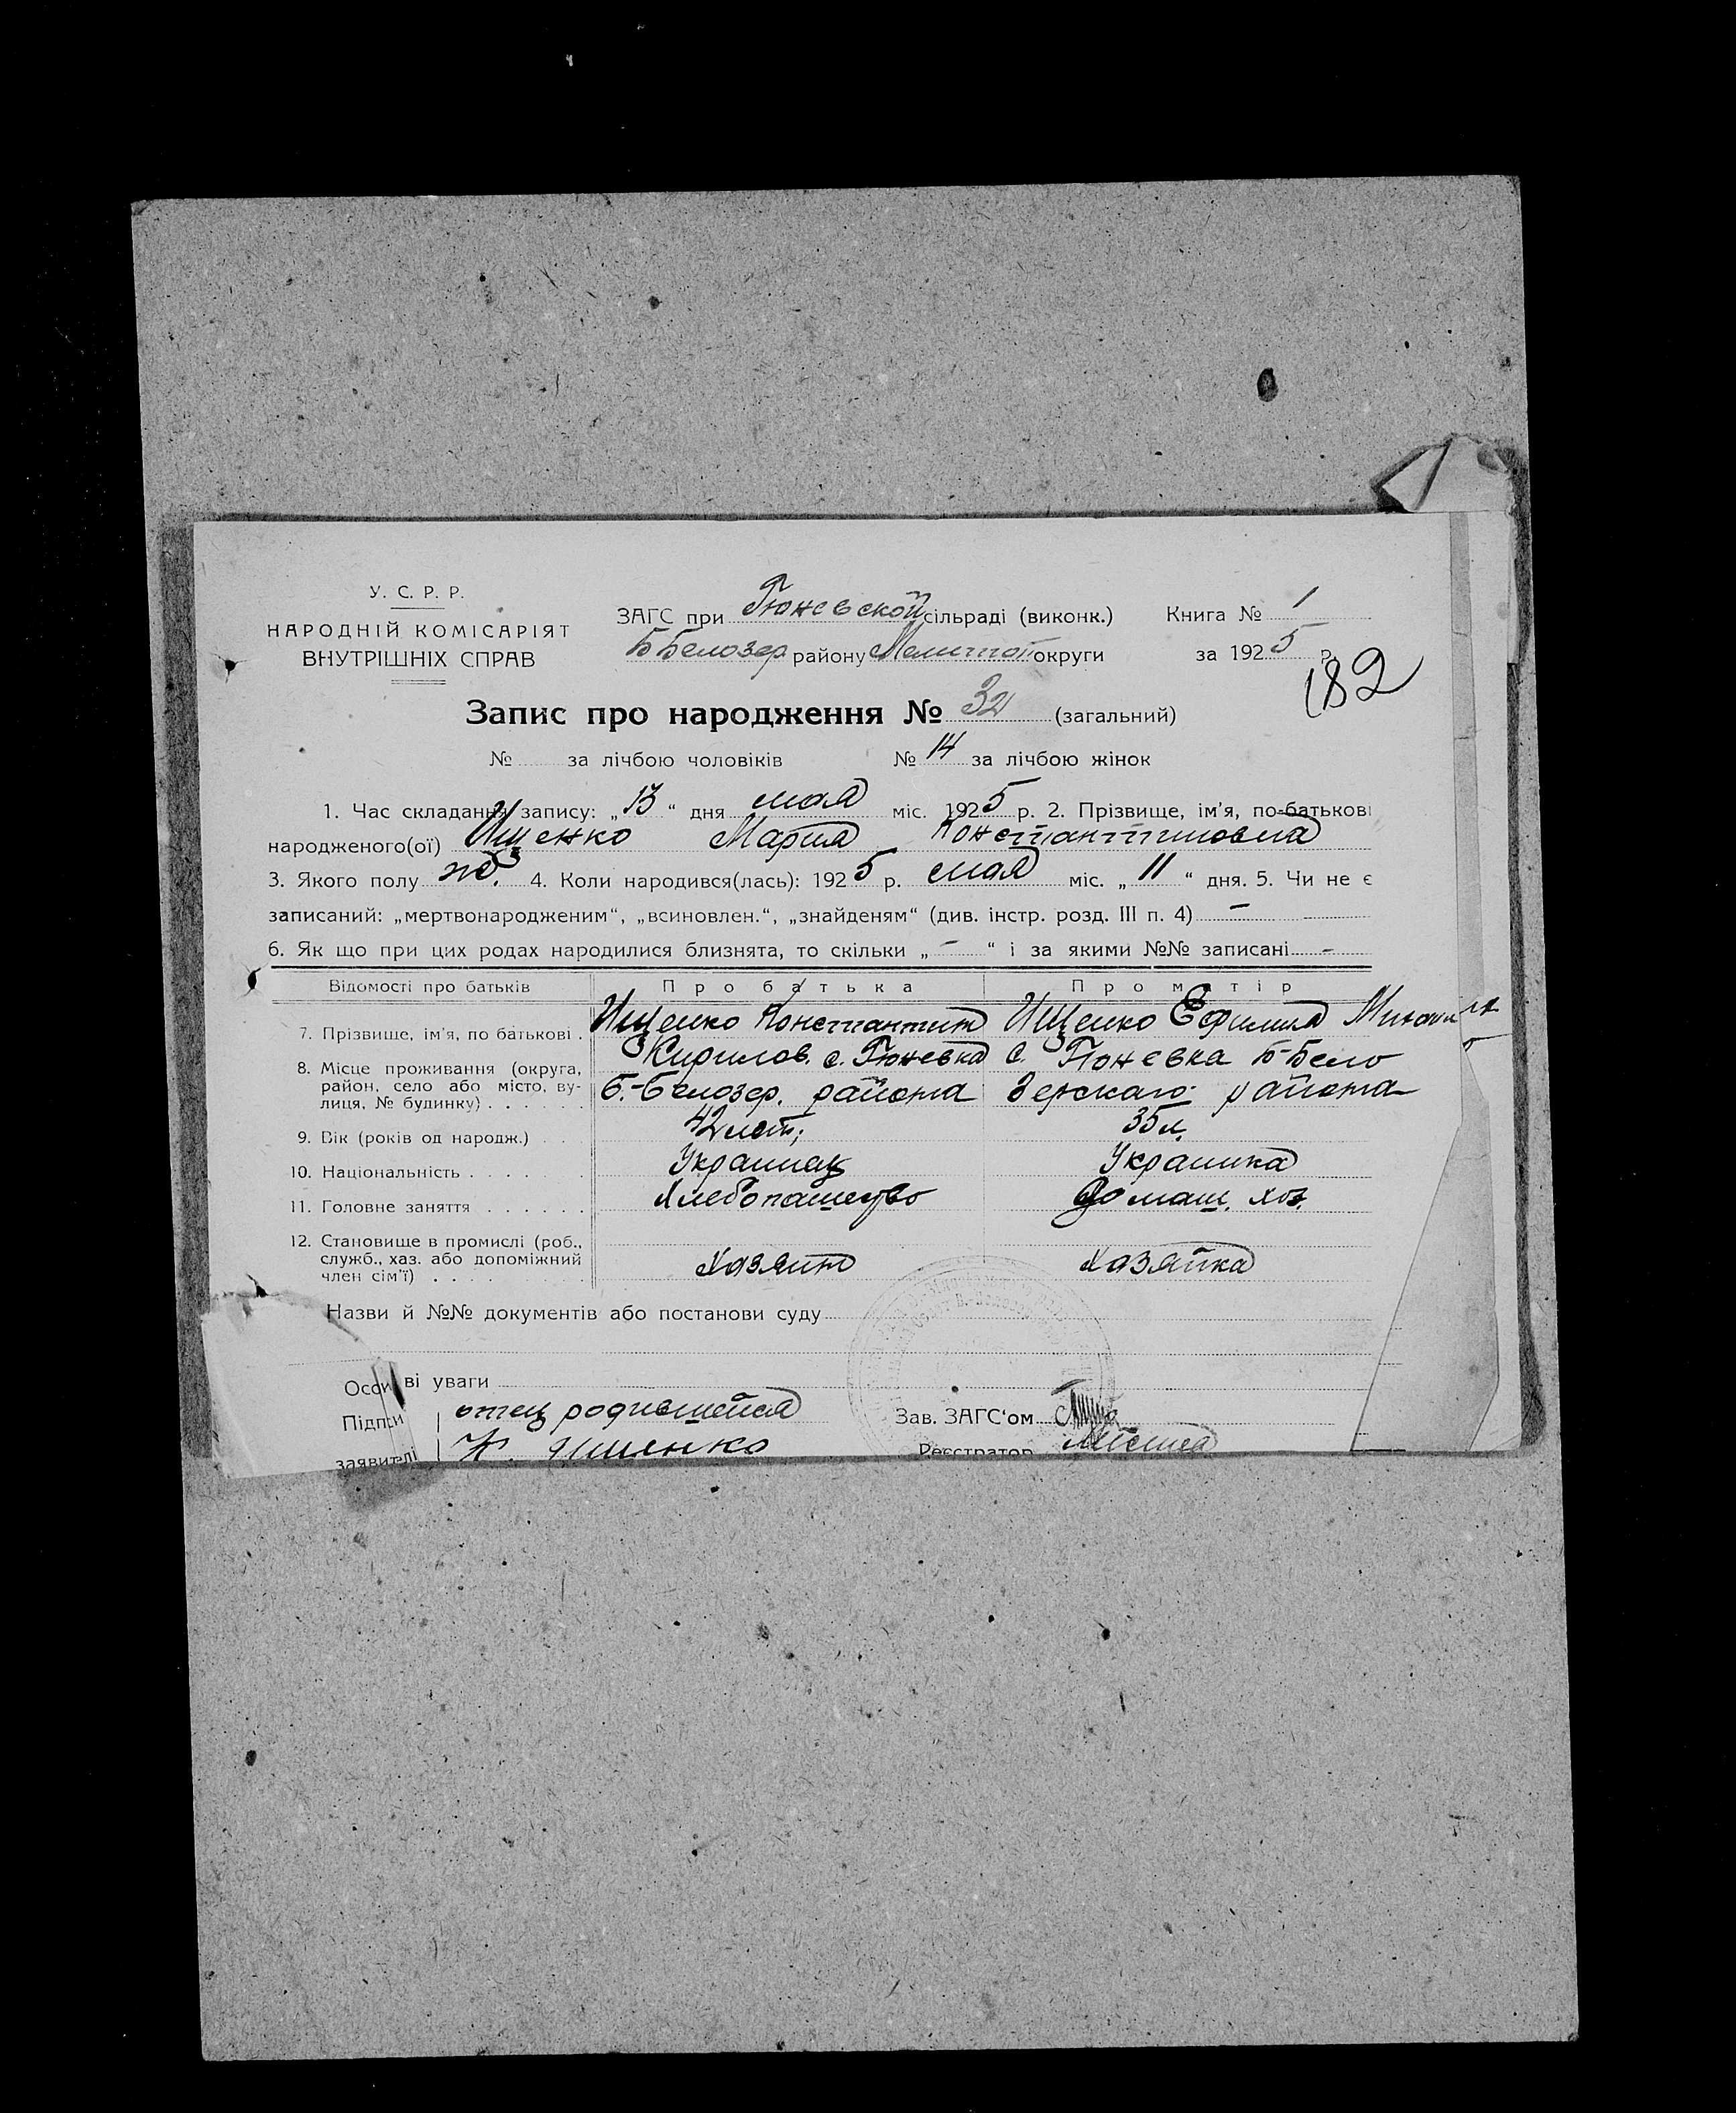 У. С. Р. Р.
НАРОДНІЙ КОМІСАРІЯТ
ВНУТРІШНІХ СПРАВ
ЗАГС при Гюневской сільраді (виконк.)
Б Белозер району Мелитоп округи
Книга № 1
за 1925 р.
182
Запис про народження № 32 (загальний)
№ за лічбою чоловіків № 14 за лічбою жінок
1. Час складання запису: „13“ дня мая міс. 1925 р. 2. Прізвище, ім'я, по-батькові
народженого(ої) Ищенко Мария Константиновна
3. Якого полу ж. 4. Коли народився(лась): 1925 р. мая міс. „11“ дня. 5. Чи не є
записаний: „мертвонародженим“, „всиновлен.“, „знайденям“ (див. інстр. розд. III п. 4) –
6. Як що при цих родах народилися близнята, то скільки „–“ і за якими №№ записані –
Відомості про батьків Про батька Про матір
7. Прізвище, ім'я, по батькові . Ищенко Константин Ищенко Ефимия
Кирилов. с. Гюневка с. Гюневка Б-Бело
8. Місце проживання (округа, район, село або місто, вулиця, № будинку) . . . . . . Б.-Белозер. района зерскаго района
9. Вік (років од народж.) . . . 42 лет; 35 л.
10. Національність . . . . . . Украинец Украинка
11. Головне заняття . . . . . . Хлебопашество Домаш. хоз.
12. Становище в промислі (роб., служб., хаз. або допоміжний член сім'ї) . . . . Хазяин Хазяйка
Назви й №№ документів або постанови суду
Особи ві уваги
Підпси отец родившейся
заявителі К. Ищенко
Зав. ЗАГС'ом
Реєстратор